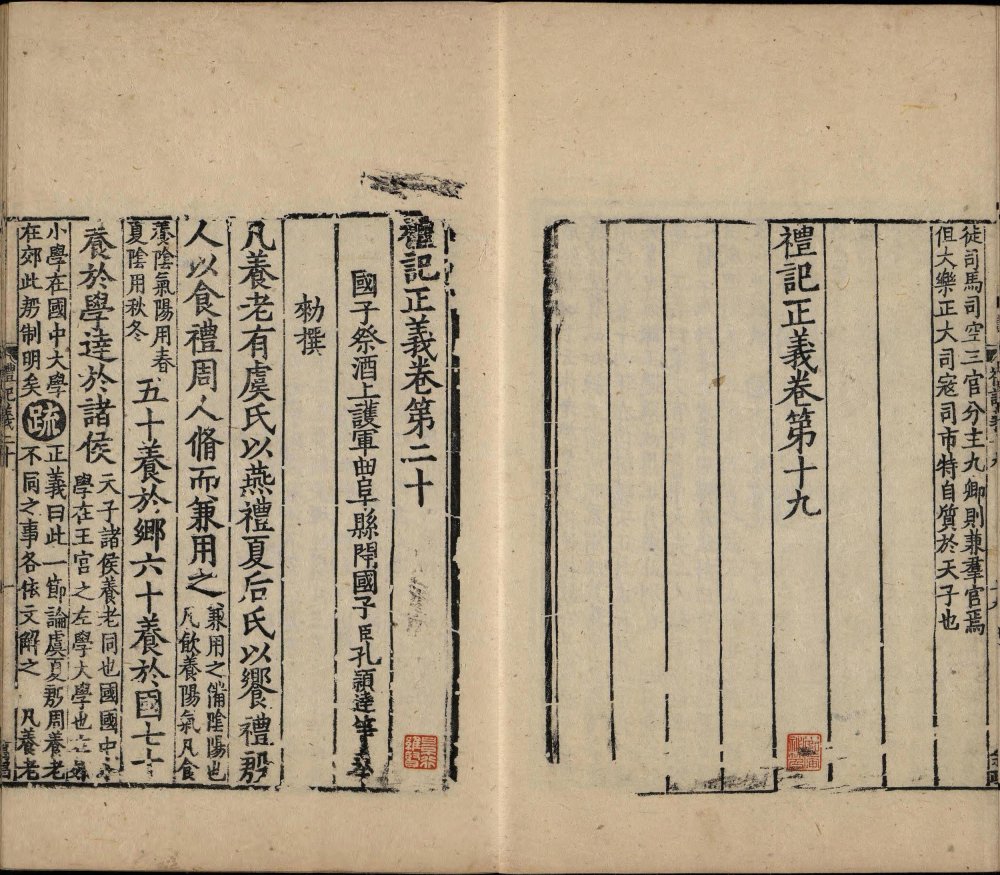 徒司馬司空三官分主九卿則兼羣官焉
但大樂正大司寇司市特自質於天子也
禮記正義卷第十九
禮記正義卷第二十
國子祭酒上護軍曲阜縣開國子臣孔穎達等奉
勑撰
凡養老有虞氏以燕禮夏后氏以饗禮殷
人以食禮周人脩而兼用之
兼用之備陰陽也
凡飲養陽氣凡食
養陰氣陽用春
夏陰用秋冬
五十養於鄉六十養於國七十
養於學達於諸侯
天子諸侯養老同也國國中小
學在王宮之左學大學也
小學在國中大學
在郊此殷制明矣
疏
正義曰此一節論虞夏殷周養老
不同之事各依文解之
凡養老